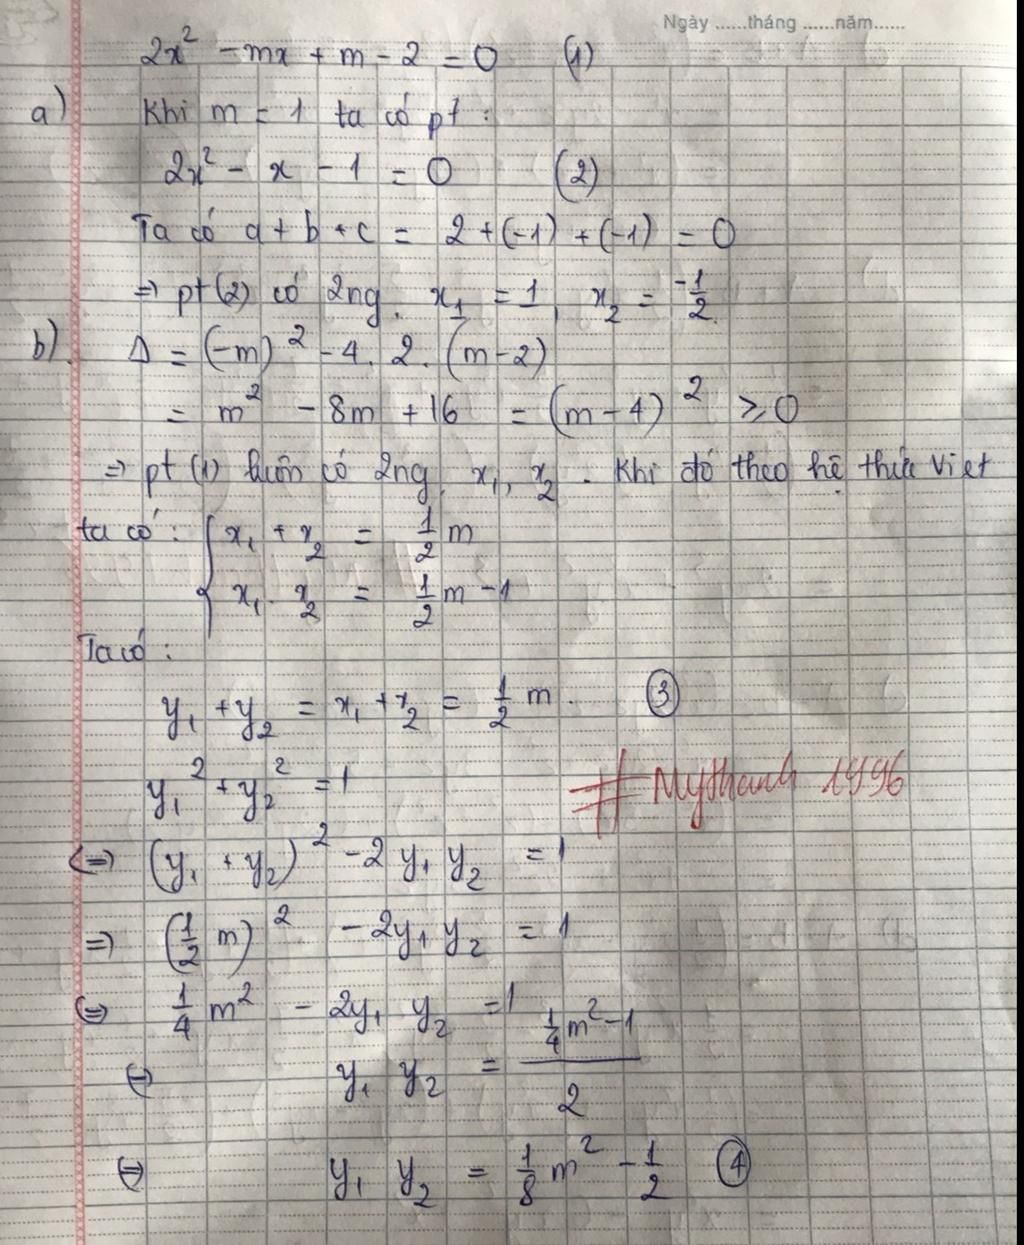 Ngày ......tháng ......năm......
2x² - mx + m - 2 = 0 (1)
a) Khi m = 1 ta có pt :
2x² - x - 1 = 0 (2)
Ta có a + b + c = 2 + (-1) + (-1) = 0
⇒ pt (2) có 2ng. x₁ = 1, x₂ = -1/2.
b). Δ = (-m)² - 4. 2. (m - 2)
= m² - 8m + 16 = (m - 4)² ≥ 0
⇒ pt (1) luôn có 2ng. x₁, x₂. Khi đó theo hệ thức Viet
ta có : { x₁ + x₂ = 1/2 m
x₁. x₂ = 1/2 m - 1
Ta có :
y₁ + y₂ = x₁ + x₂ = 1/2 m. ③
y₁² + y₂² = 1
# Mythanh 1996
⇔ (y₁ + y₂)² - 2 y₁ y₂ = 1
⇒ (1/2 m)² - 2y₁ y₂ = 1
⇔ 1/4 m² - 2y₁ y₂ = 1
⇔ y₁ y₂ = (1/4 m² - 1)/2
⇔ y₁ y₂ = 1/8 m² - 1/2 ④